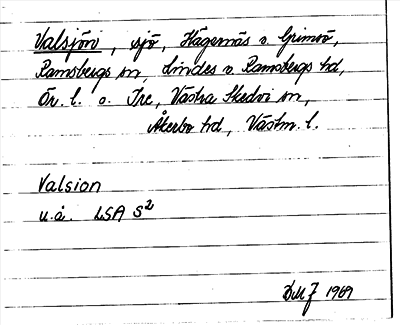 Valsjön, sjö, Hägernäs o. Grimsö,
Ramsbergs sn, Lindes o. Ramsbergs hd,
Ör. l. o. Tre, Västra Skedvi sn,
Åkerbo hd, Västm. l.
Valsion
u.å. LSA S2
DMZ 1969